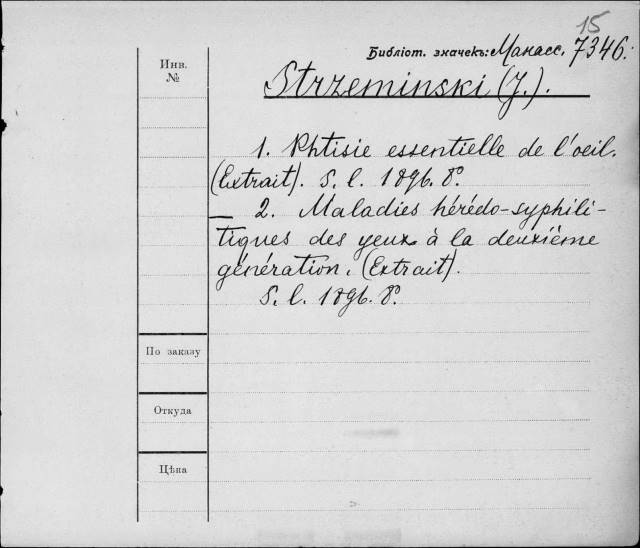 15
Библіот. значекъ: Манасс. 7346.
Инв.
№
Strzeminski (J.).
1. Phtisie essentielle de l'oeil.
(Extrait). S. l. 1896. 8º.
— 2. Maladies hérédo-syphili-
tiques des yeux à la deuxième
génération. (Extrait).
S. l. 1896. 8º.
По заказу
Откуда
Цѣна